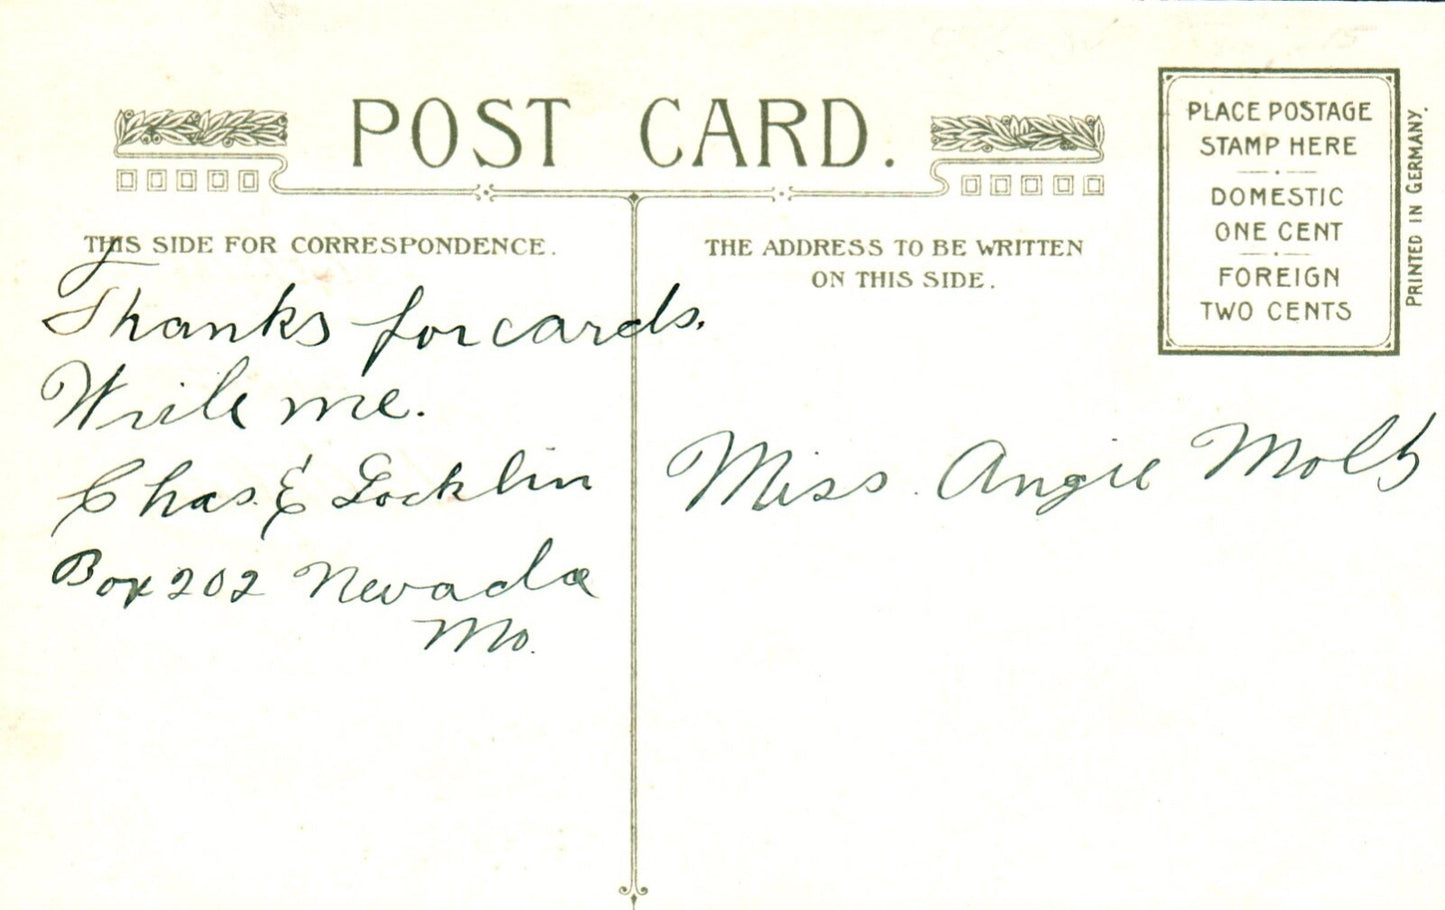 POST CARD.
THIS SIDE FOR CORRESPONDENCE.
Thanks for cards.
Write me.
Chas. E Locklin
Box 202 Nevada
Mo.
THE ADDRESS TO BE WRITTEN
ON THIS SIDE.
Miss. Angie
PLACE POSTAGE
STAMP HERE
DOMESTIC
ONE CENT
FOREIGN
TWO CENTS
PRINTED IN GERMANY.